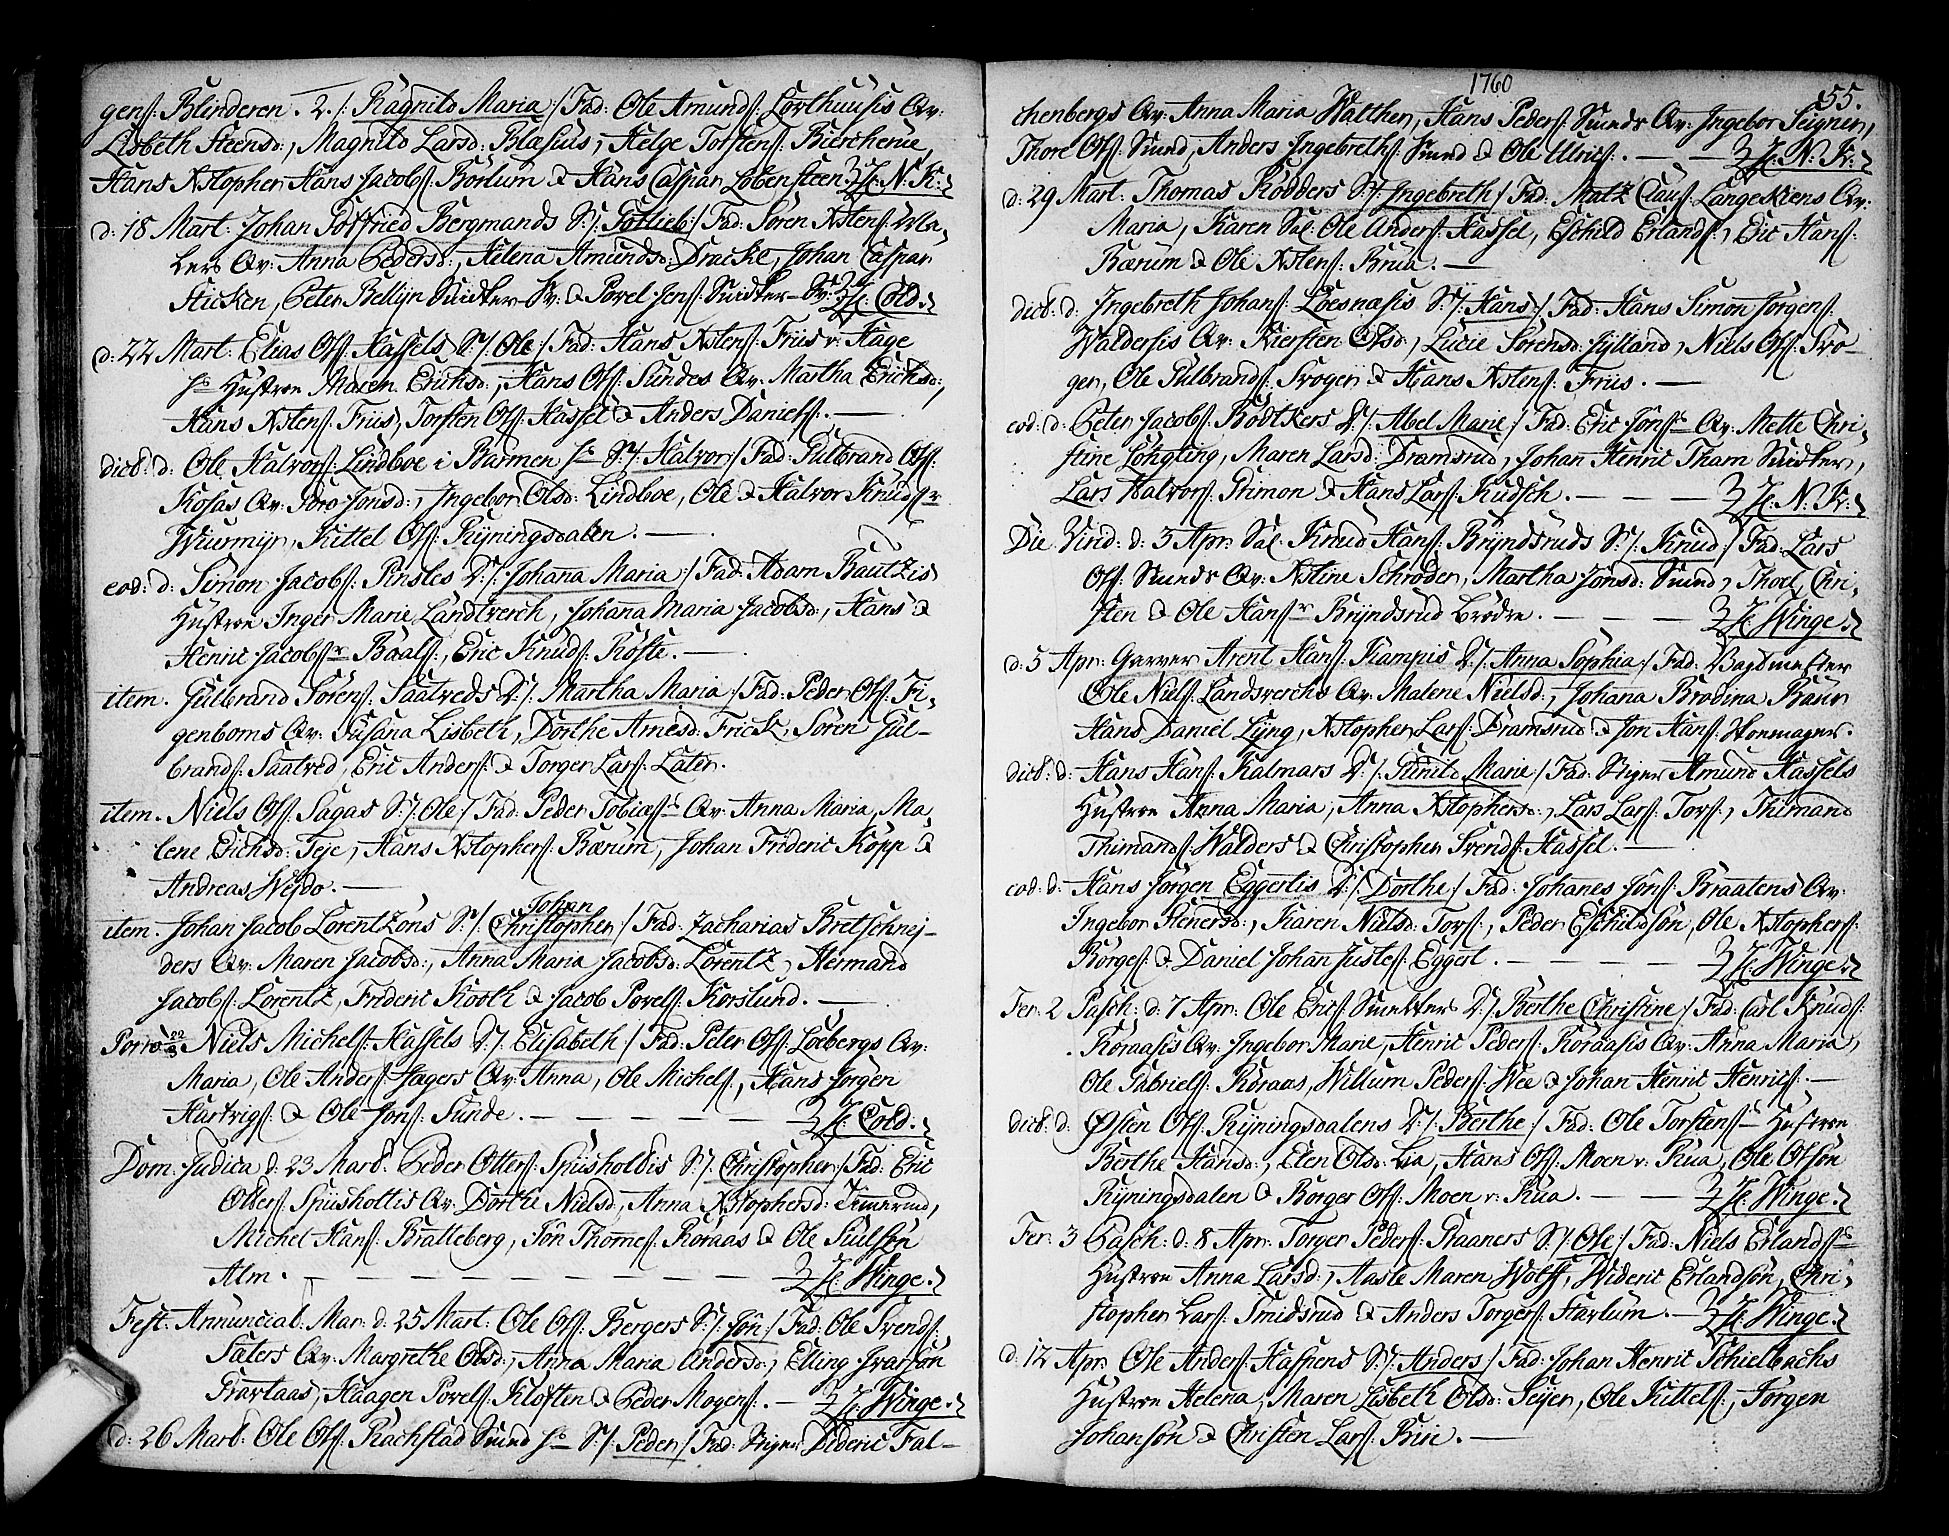 gens: Blinderen. 2. /: Ragnild Maria :/ Fad: Ole Amunds: Lorthuusis Qv:
Lisbeth Steensd:, Magnild Larsd: Blasius, Helge Torstens: Bierchene,
Hans Xstopher Hans Jacobs: Borlum & Hans Caspar Lobensteen H: N: K:
d: 18 Mart: Johan Gotfried Bergmands S: /: Gotlieb :/ Fad: Sören Xstens: Ma-
lers Qv: Anna Pedersd:, Helena Amundsd: Dracke, Johan Caspar
Sticken, Peter Bellijn Snidker Sv: & Povel Jens: Snidker-Sv: H: Cold.
d: 22 Mart: Elias Ols: Hassels S: /: Ole :/ Fad: Hans Xstens: Friis v: Hage
hs Hustroe Maren Erichsd:, Hans Ols: Sundes Qv: Martha Erichsd:,
Hans Xstens: Friis, Torsten Ols: Hassel & Anders Daniels:.
dict: d: Ole Halvors: Lindboe i Barmen hs S: /: Halvor :/ Fad: Gulbrand Ols:
Kosas Qv: Goro Jonsd:, Ingebor Olsd: Lindboe, Ole & Halvor Knudsr
Wiurmijr, Kittel Ols: Ryningsdalen.
eod: d: Simon Jacobs: Pinslis D: /: Johana Maria :/ Fad: Adam Bautzis
Hustroe Inger Marie Landtverch, Johana Maria Jacobsd:, Hans &
Henric Jacobsr Baals:, Eric Knuds: Röste.
item. Gulbrand Sörens: Saatveds D: /: Martha Maria :/ Fad: Peder Ols: Fi-
genboms Qv: Susana Lisbeth, Dorthe Arnesd: Frick, Sören Gul-
brands: Saatved, Eric Anders: & Torger Lars: Later.
item. Niels Ols: Sagas S: /: Ole :/ Fad: Peder Tobiæs: Qv: Anna Maria, Ma-
lene Erichsd: Teje, Hans Xstophers: Bærum, Johan Frideric Köpp &
Andreas Wejdo.
item. Johan Jacob Lorentzons S: /: Johan Christopher :/ Fad: Zacharias Bretschnej-
ders Qv: Maren Jacobsd:, Anna Maria Jacobsd: Lorentz, Hermand
Jacobs: Lorentz, Frideric Kooth & Jacob Povels: Korslund.
Porro 22/3 Niels Michels: Hassels D: /: Elisabeth :/ Fad: Peter Ols: Loebergs Qv:
Maria, Ole Anders: Jagers Qv: Anna, Ole Michels:, Hans Jörgen
Hartvigs: & Ole Jons: Sunde. H: Cold.
Dom: Judica d: 23 Mart: Peder Otters: Spiisholtis S: /: Christopher :/ Fad: Eric
Otters: Spiisholtis Qv: Dorthe Nielsd:, Anna Xstophersd:
Michel Hans: Bratteberg, Jön Thomes: Koraas & Ole Siulsön
Alm. H: Winge.
Fest: Annunciat: Mar: d: 25 Mart: Ole Ols: Bergers S: /: Jön :/ Fad: Ole Svends:
Saters Qv: Margrethe Olsd:, Anna Maria Andersd:, Elling Ivarsön
Travlaas, Haagen Povels: Kloften & Peder Mogens:. H: Winge.
d: 26 Mart: Ole Ols: Rachstad Smed hs S: /: Peder :/ Fad: Stiger Dideric Fal-
1760
55.
chenbergs Qv: Anna Maria Walther, Hans Peders: Smeds Qv: Ingebor Seigner,
Thore Ols: Smed, Anders Ingebreths: Smed & Ole Ulrics:. H: N: K:
d: 29 Mart: Thomas Rodders S: /: Ingebreth :/ Fad: Matz Claus: Langeskiens Qv:
Maria, Karen Sal: Ole Anders: Hassel, Eschild Erlands:, Eric Hans:
Bærum & Ole Xstens: Brua.
dict: d: Ingebreth Johans: Loesnæsis S: /: Hans :/ Fad: Hans Simon Jörgens:
Waldersis Qv: Kiersten Olsd:, Lucie Sorensd: Jylland, Niels Ols: Kro-
ger, Ole Gulbrands: Kroger & Hans Xstens: Friis.
eod: d: Peter Jacobs: Bödtkers D: /: Abel Marie :/ Fad: Eric Jöns: Qv: Mette Chri-
stine Löhgling, Maren Larsd: Dramsrud, Johan Henric Tharn Snidker,
Lars Halvors: Stimon & Hans Lars: Kudsch. H: N: K:
Die Virid: d: 3 Apr: Sal: Knud Hans: Bryndsruds S: /: Knud :/ Fad: Lars
Ols: Smeds Qv: Xstine Schröder, Martha Jonsd: Smed, Thoel, Chri-
sten & Ole Hansr Bryndsrud brödre. H: Winge.
d: 5 Apr: Garver Arent Hans: Kampis D: /: Anna Sophia :/ Fad: Bagdmester
Ole Niels: Landsverchs Qv: Malene Nielsd:, Johana Brodina Baur
Hans Daniel Lyng, Xstopher Lars: Dramsrud & Jon Hans: Stoemager.
dict: d: Hans Hans: Kalmars D: /: Gunild Marie :/ Fad: Stiger Amund Hassels
Hustroe Anna Maria, Anna Xstophersd:, Lars Lars: Tors:, Thimand
Thimands: Walders & Christopher Svends: Hassel.
eod: d: Hans Jörgen Eggertis D: /: Dorthe :/ Fad: Johanes Jöns: Braatens Qv:
Ingebor Stenersd:, Karen Nielsd: Tors:, Peder Eschildsön, Ole Xstophers:
Börges: & Daniel Johan Justes: Eggert. H: Winge.
Fer: 2 Pasch: d: 7 Apr: Ole Erics: Smelters D: /: Berthe Christine :/ Fad: Carl Knuds:
Koraasis Qv: Ingebor Marie, Henric Peders: Koraasis Qv: Anna Maria,
Ole Gabriels: Koraas, Willum Peders: Wee & Johan Henric Henrics:.
dict: d: Østen Ols: Ryningsdalens D: /: Berthe :/ Fad: Ole Torstens: Hustroe
Berthe Hansd:, Elen Olsd: Lia, Hans Ols: Moen v: Rua, Ole Olsön
Ryningsdalen & Börger Ols: Moen v: Rua. H: Winge.
Fer: 3 Pasch: d: 8 Apr: Torger Peders: Raaners S: /: Ole :/ Fad: Niels Erlands:
Hustroe Anna Larsd:, Aasle Maren Wolff, Wideric Erlandsön, Chri-
stopher Lars: Smidsrud & Anders Torgers: Harlum. H: Winge.
d: 12 Apr: Ole Anders: Haspens S: /: Anders :/ Fad: Johan Henric Schielbachs
Hustroe Helena, Maren Lisbeth Olsd: Seijer, Ole Kittels:, Jörgen
Johansön & Christen Lars: Brii.